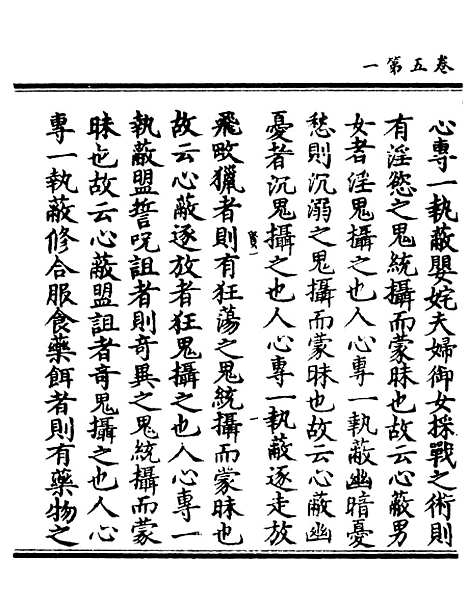 卷五第一
心專一執蔽嬰姹夫婦御女採戰之術則
有淫慾之鬼統攝而蒙昧也故云心蔽男
女者淫鬼攝之也人心專一執蔽幽暗憂
愁則沉溺之鬼攝而蒙昧也故云心蔽幽
憂者沉鬼攝之也人心專一執蔽逐走放
飛畋獵者則有狂蕩之鬼統攝而蒙昧也
故云心蔽逐放者狂鬼攝之也人心專一
執蔽盟誓呪詛者則奇異之鬼統攝而蒙
昧也故云心蔽盟詛者奇鬼攝之也人心
專一執蔽修合服食藥餌者則有藥物之